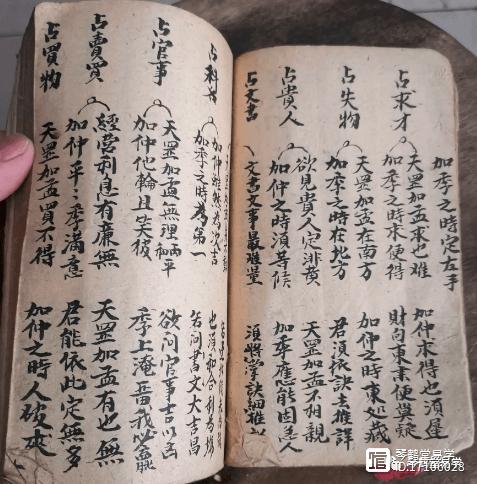 加季之時定左手
占求才
天罡加孟求也难 加仲求得也須遲
加季之時求便得 財向東來便無疑
占失物
天罡加孟在南方 加仲之時東処藏
加季之時在地方 君須依訣去推詳
占貴人
欲見貴人定排黄 天罡加孟不相親
加仲之時須等候 加季應能因
占文書
文書文事最難量 須将掌訣細推
占科
加季之時為第一
加仲雖然為次吉 也須和合利為揚
若问書文大吉昌
占官事
天罡加孟無理 欲问官事吉
加仲他輸且失 季上淹
占賣買
經营利息有兼無 天罡加孟有也無
加仲平平季满意 君能依此定無多
占買物
天罡加孟買不得 加仲之時人
琴鹤堂易学
ID:17106028